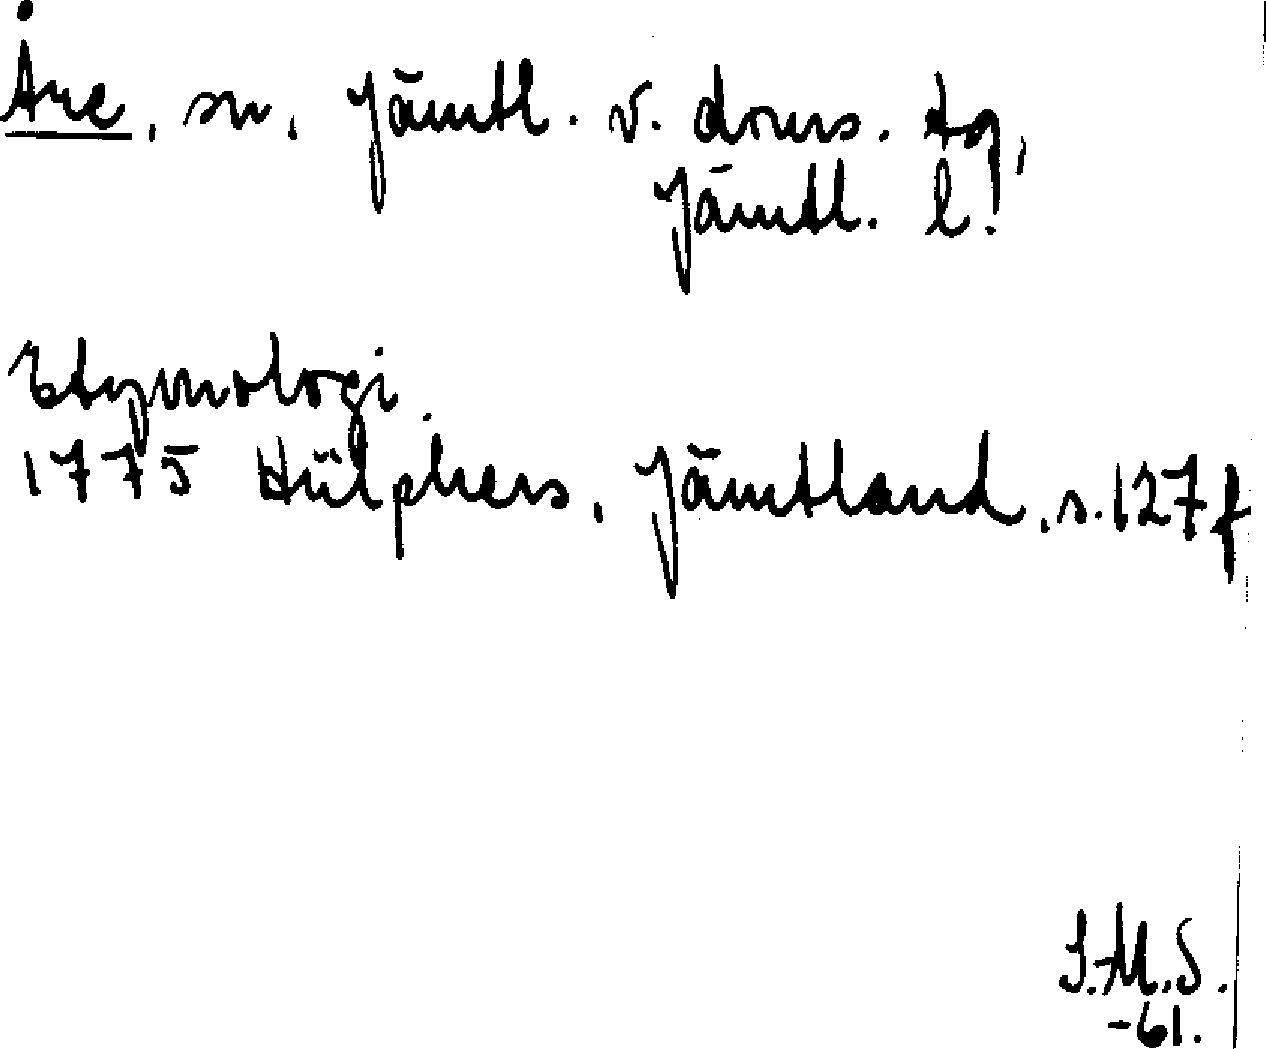 Åre, sn, Jämtl. v. doms. tg,
Jämtl. l.
Etymologi.
1775 Hülphers, Jämtland, s. 127 f
I.M.S.
-61.